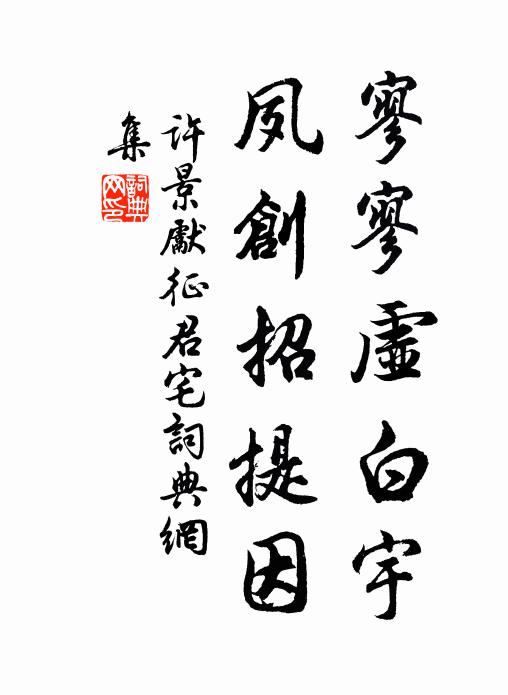 寥寥虛白宇
夙創招提因
許景獻征君宅詞典網
集
詞典
網印